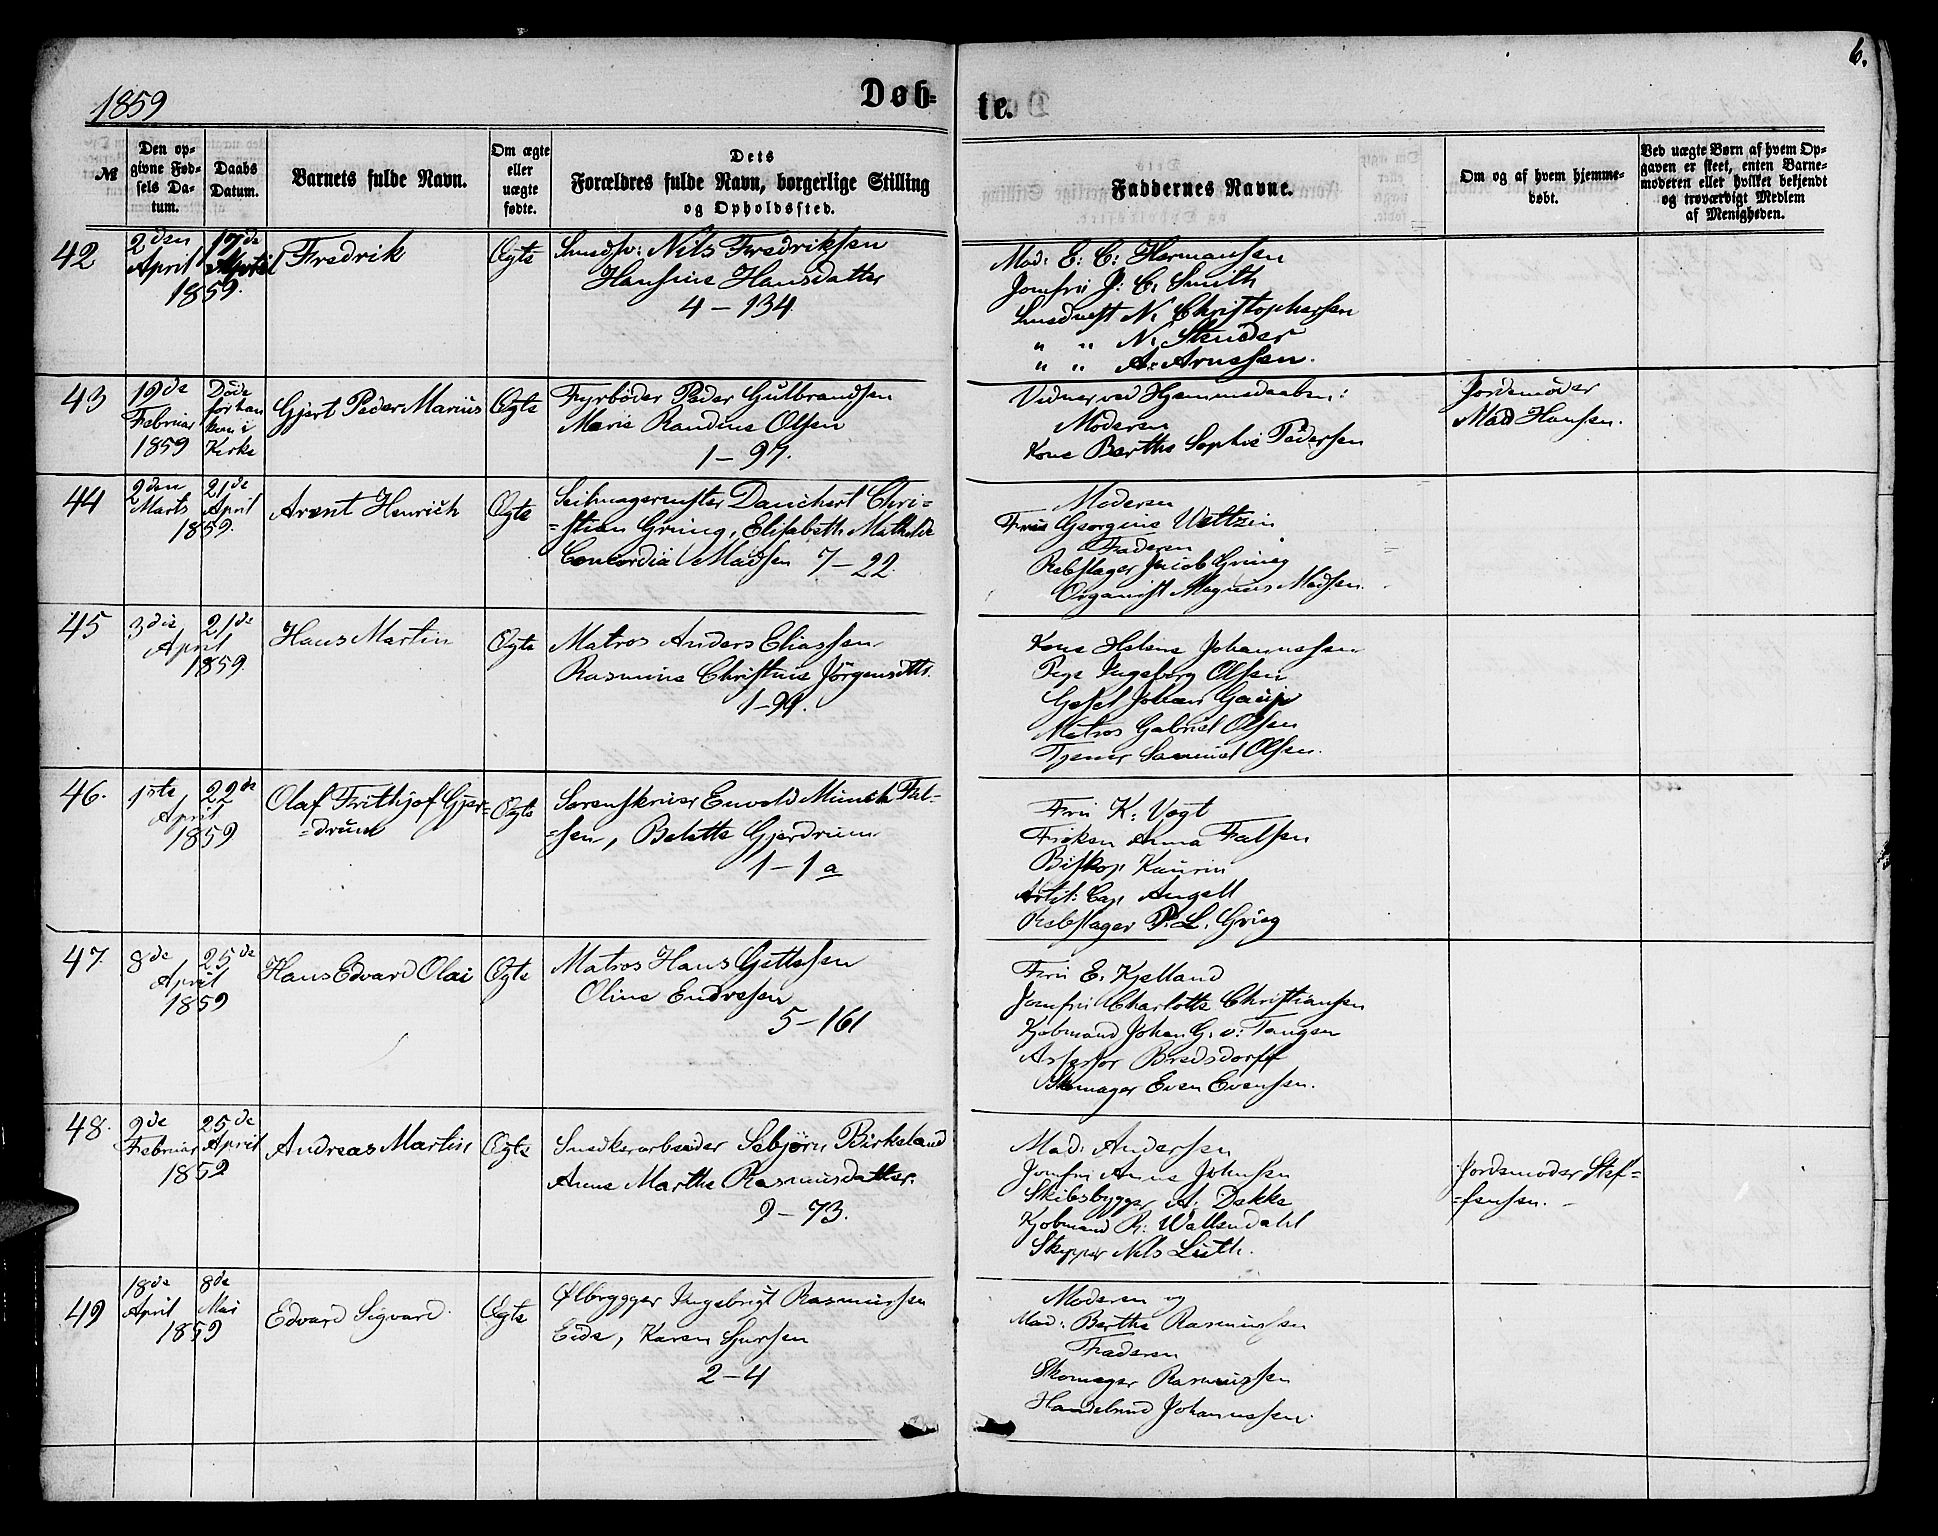 1859
Døb-
te.
6.
№
Den op-
givne Fød-
sels Da-
tum.
Daabs
Datum.
Barnets fulde Navn.
Om ægte
eller
uægte
fødte.
Dets
Forældres fulde Navn, borgerlige Stilling
og Opholdssted.
Faddernes Navne.
Om og af hvem hjemme-
døbt.
Ved uægte Børn af hvem Op-
gaven er skeet, enten Barne-
moderen eller hvilket bekjendt
og troværdigt Medlem
af Menigheden.
42
2den April
17de April
1859.
Fredrik
Ægte
Smedsv: Nils Fredriksen
Hansine Hansdatter
4 – 134
Mad: E: C: Hermansen
Jomfru J: C. Smith
Smedmest N. Christophersen
" " N. Skuder
" " A. Arnesen.
43
19de
Februar
1859
Døde
før han
kom i
Kirke
Gjert Peder Marius
Ægte
Fyrbøder Peder Gulbrandsen
Marie Randine Olsen
1 – 97.
Vidner ved Hjemmedaaben:
Moderen
Kone Berthe Sophie Pedersen
Jordemoder
Mad Hansen.
44
2den Marts
21de April
1859.
Arent Henrich
Ægte
Seilmagermester Danchert Chri-
=stian Grung, Elisabeth Mathilde
Concordia Madsen 7 – 22.
Moderen
Frue Georgine Weltzin
Faderen
Rebslager Jacob Grieg
Organist Magnus Madsen.
45
3die
21de
April
1859.
Hans Martin
Ægte
Matros Anders Eliassen
Rasmine Christine Jörgensdtt.
1 – 99.
Kone Helene Johannessen
Pige Ingeborg Olsen
Gesel Johan Gaup
Matros Gabriel Olsen
Tjener Samuel Olsen.
46.
1ste
22de
April
1859
Olaf Frithjof Gjer-
=drum
Ægte
Sorenskriver Envold Munch Fal-
=sen, Belette Gjerdrum
1 – 1 a
Fru K: Vogt
Frøken Anna Falsen
Biskop Kaurin
Artil: Cap Angell
Rebslager P. L. Grieg
47.
8de
25de
April
1859
Hans Edvard Olai
Ægte
Matros Hans Gittesen
Oline Endresen
5 – 161
Fru E. Kjelland
Jomfru Charlotte Christiansen
Kjøbmand Johan G. v: Tangen
Assesor Bredsdorff
Skomager Even Evensen.
48.
2de
Februar
25de
April
1859
Andreas Martin
Ægte
Snedkerarbeider Sebjørn Birkeland
Anne Marthe Rasmusdatter.
9 – 73.
Mad: Andersen
Jomfru Anne Johnsen
Skibsbygger A: Dekke
Kjøbmand R: Wallendahl
Skipper Nils Lüth.
Jordemoder Stef-
=fensen. –
49
18de
April
8de
Mai
1859
Edvard Sigvard
Ægte
Ølbrygger Ingebrigt Rasmussen
Eide, Karen Sjursen
2 – 4
Moderen og
Mad: Berthe Rasmussen
Faderen
Skomager Rasmussen
Handelsmd Johannessen.